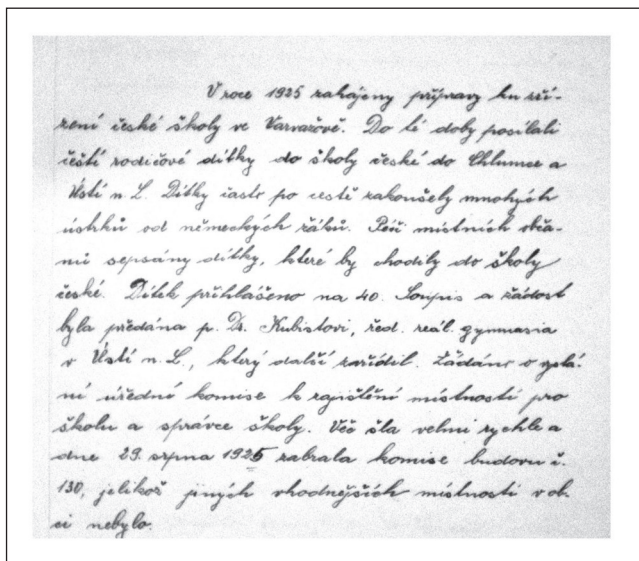 V roce 1925 zahájeny přípravy ku zří-
zení české školy ve Varvažově. Do té doby posílali
čeští rodičové dítky do školy české do Chlumce a
Ústí n. L. Dítky často po cestě zakoušely mnohých
ústrků od německých žáků. Péčí místních obča-
nů sepsány dítky, které by chodily do školy
české. Dítek přihlášeno na 40. Soupis a žádost
byla předána p. Dr. Kubistovi, řed. reál. gymnasia
v Ústí n. L., který další zařídil. Žádáno o vyslá-
ní úřední komise k zajištění místností pro
školu a správce školy. Věc šla velmi rychle a
dne 29. srpna 1925 zabrala komise budovu č.
130, jelikož jiných vhodnějších místností v ob-
ci nebylo.